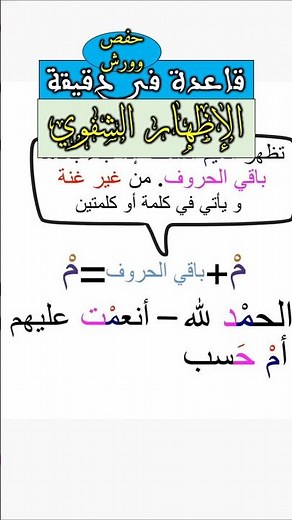 حفص
وورش
قاعدة في دقيقة
الإظهار الشفوي
تظهر
باقي الحروف. من غير غنة
و يأتي في كلمة أو كلمتين
مْ+باقي الحروف=مْ
الحمْد لله – أنعمْت عليهم
أمْ حَسب